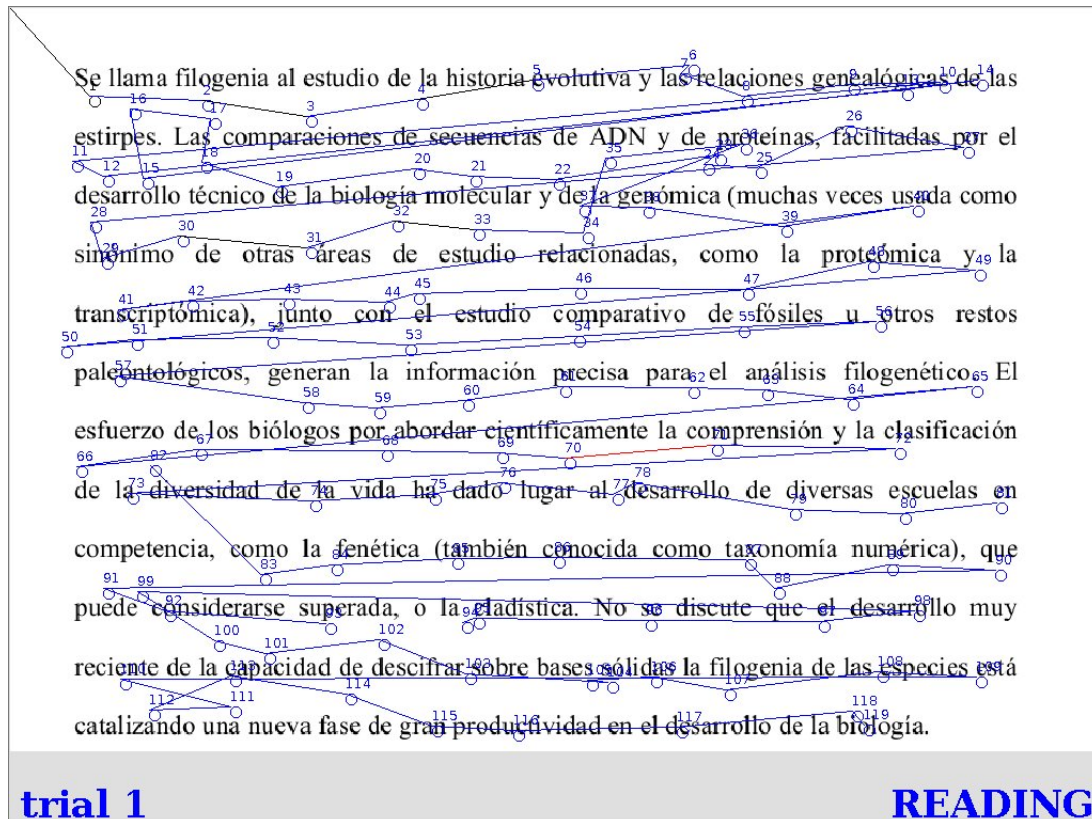 Se llama filogenia al estudio de la historia evolutiva y las relaciones genealógicas de las
estirpes. Las comparaciones de secuencias de ADN y de proteínas, facilitadas por el
desarrollo técnico de la biología molecular y de la genómica (muchas veces usada como
sinónimo de otras áreas de estudio relacionadas, como la proteómica y la
transcriptómica), junto con el estudio comparativo de fósiles u otros restos
paleontológicos, generan la información precisa para el análisis filogenético. El
esfuerzo de los biólogos por abordar científicamente la comprensión y la clasificación
de la diversidad de la vida ha dado lugar al desarrollo de diversas escuelas en
competencia, como la fenética (también conocida como taxonomía numérica), que
puede considerarse superada, o la cladística. No se discute que el desarrollo muy
reciente de la capacidad de descifrar sobre bases sólidas la filogenia de las especies está
catalizando una nueva fase de gran productividad en el desarrollo de la biología.
trial 1 READING